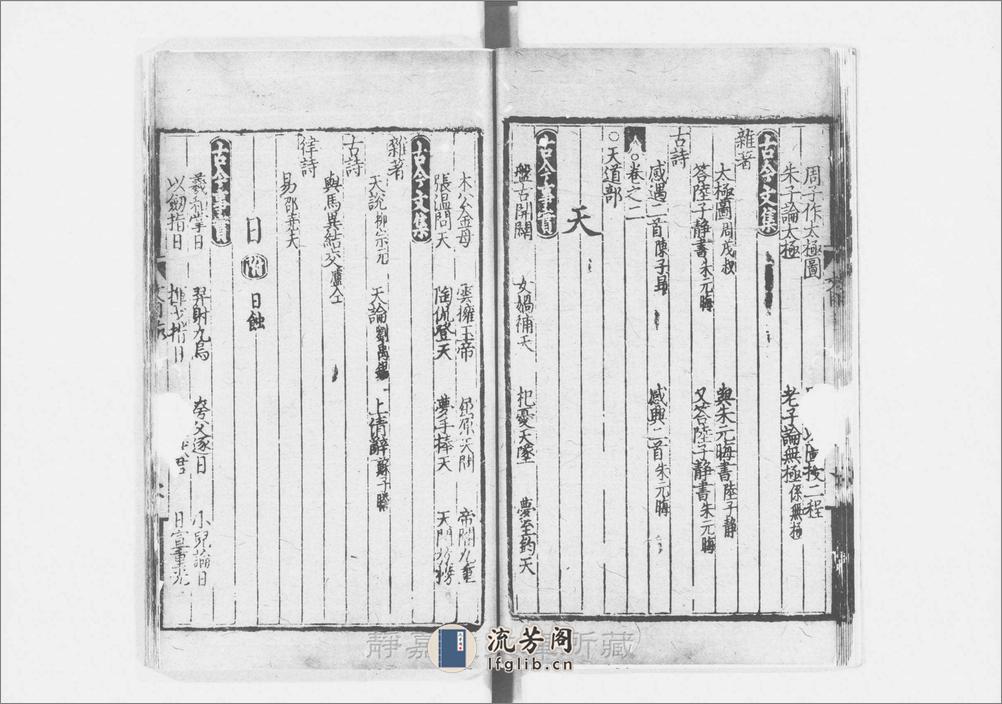 周子作太極圖 授二程
朱子論太極 老子論無極
古今文集
雜著
太極圖周茂叔 與朱元晦書陸子靜
答陸子靜書朱元晦 又答陸子靜書朱元晦
古詩
感遇二首陳子昂 感興二首朱元晦
卷之二
○天道部
天
古今事實
盤古開闢 女媧補天 杞憂天墜 夢至鈞天
木公金母 雲擁玉帝 屈原天問 帝閽九重
張溫問天 陶侃登天 夢手捧天 天門放榜
古今文集
雜著
天說柳宗元 天論劉禹錫 上清辭
古詩
與馬異結交盧仝
律詩
易邵堯夫
日附日蝕
古今事實
羲和掌日 羿射九烏 夸父逐日 小兒論日
以劒指日 揮戈指日 日宣重光
流芳阁
lfglib.cn
靜嘉 所藏